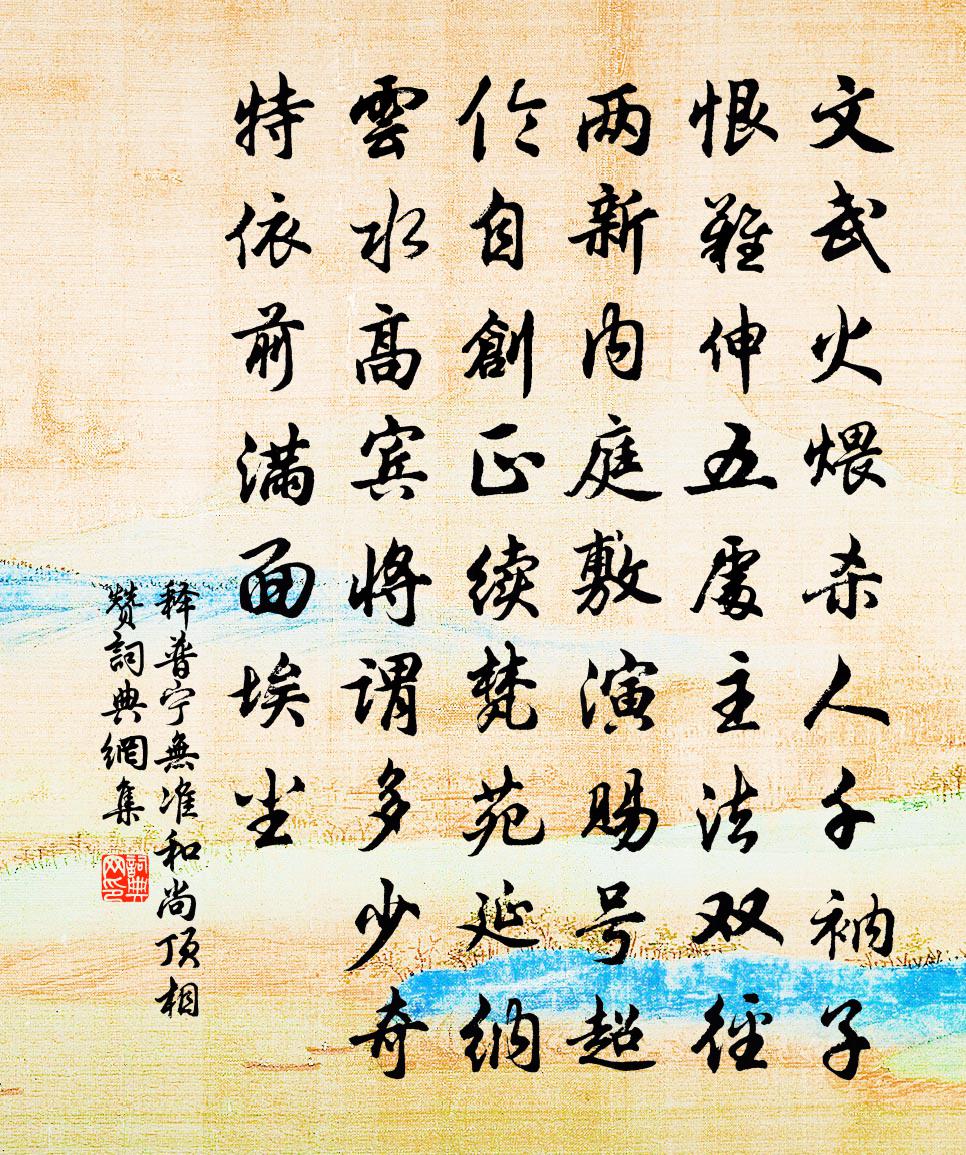 文武火煨杀人千衲子
恨難伸五處主法双徑
两新内庭敷演賜号超
伦自創正续梵苑延纳
雲水高宾將谓多少奇
特依前满面埃尘
释普宁無准和尚顶相
赞詞典網集
詞典
网印